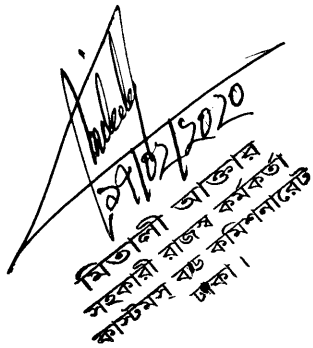 ২৭/০২/২০২০
মিতালী আক্তার
সহকারী রাজস্ব কর্মকর্তা
কাস্টমস্ বন্ড কমিশনারেট
ঢাকা।